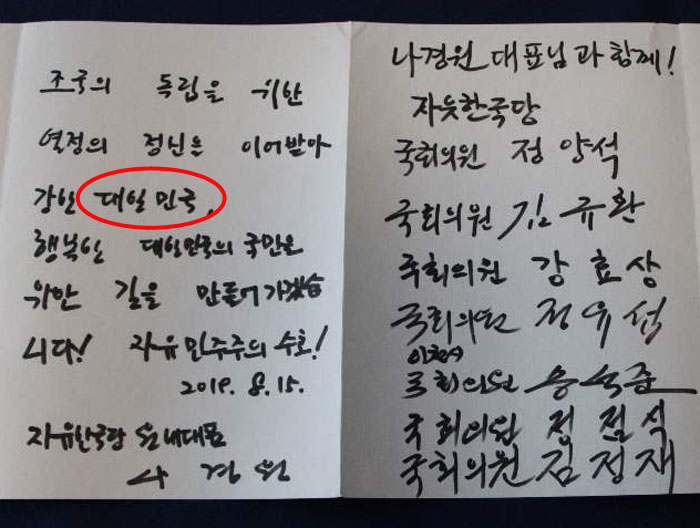 조국의 독립을 위한
열정의 정신을 이어받아
강한 대일 민국,
행복한 대일민국의 국민을
위한 길을 만들어가겠습
니다! 자유 민주주의 수호!
2019. 8. 15.
자유한국당 원내대표
나 경 원
나경원 대표님과 함께!
자유한국당
국회의원 정양석
국회의원 김규환
국회의원 강효상
국회의원 정유섭
국회의원 송석준
국회의원 정점식
국회의원 김정재